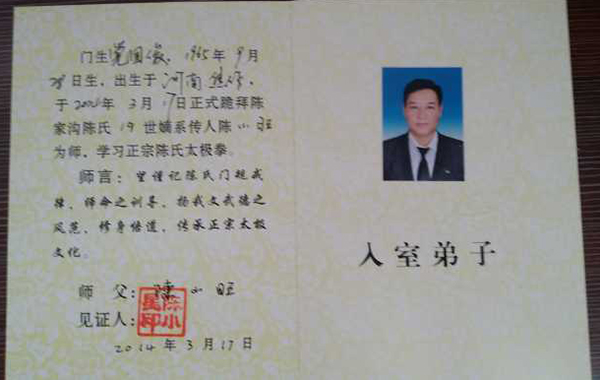 门生党国俊，1965年9月
28日生，出生于河南焦作，
于2014年3月17日正式跪拜陈
家沟陈氏19世嫡系传人陈小旺
为师，学习正宗陈氏太极拳。
师言：望谨记陈氏门规戒
律，师命之训导，扬我文武德之
风范，修身悟道，传承正宗太极
文化。
师 父：陈小旺
见证人：
2014年3月17日
入室弟子